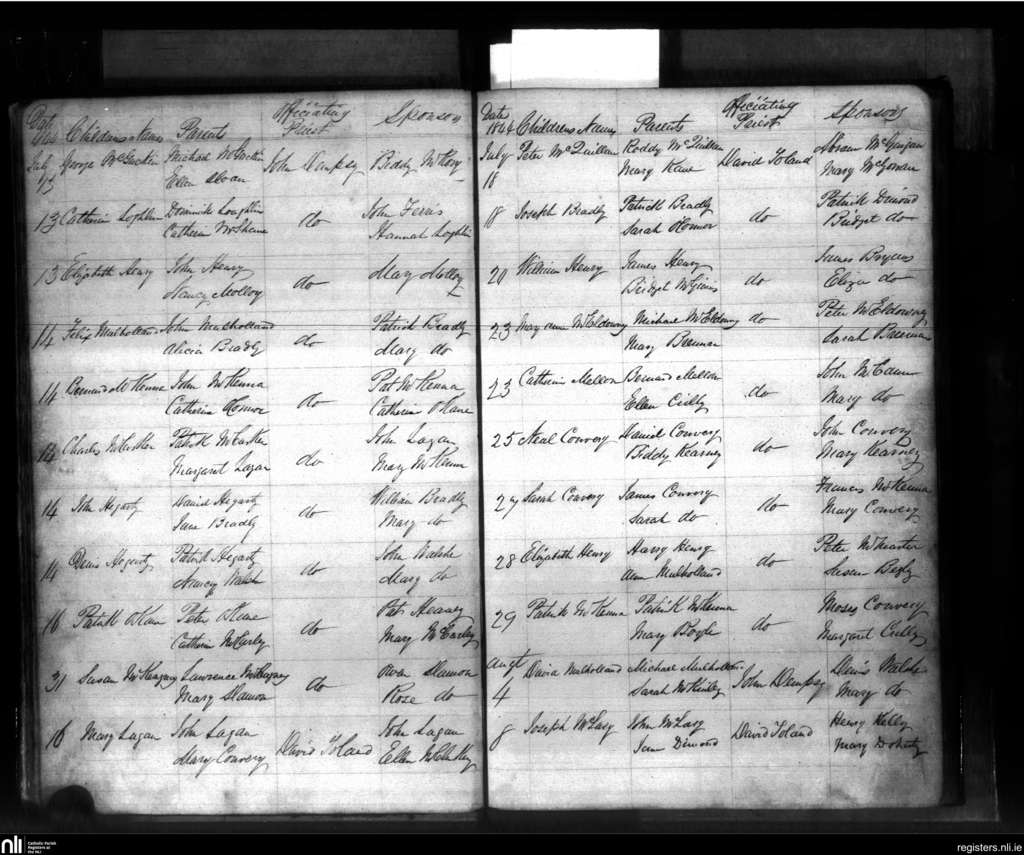 Date Childrens Names Parents Officiating Priest Sponsors
July George McGuckin Michael McGuckin John Dempsy Biddy McRory
13 Ellen Sloan
13 Catherin Loghlin Dominick Loughlin do John Ferris
Catherin McShane Hannah Loghlin
13 Elizabeth Henry John Henry do Mary Molloy
Nancy Molloy
14 Felix Mulholland John Mulholland do Patrick Bradly
Alicia Bradly Mary do
14 Bernard McKenna John McKenna do Pat McKenna
Catherin OConnor Catherin OKane
14 Charles McCusker Patrick McCusker do John Lagan
Margaret Lagan Mary McKenna
14 John Hegarty David Hegarty do William Bradly
Jane Bradly Mary do
14 Denis Hegarty Patrick Hegarty do John Walsh
Nancy Walsh Mary do
16 Patrick OKane Peter OKane do Pat Heaney
Catherin McCurly Mary McCurley
31 Susan Lawrence do Owen Diamon
Mary Diamon Rose do
16 Mary Lagan John Lagan David Toland John Lagan
Mary Convery Ellen McCluskey
Date
1844 Childrens Names Parents Officiating Priest Sponsors
July Peter McQuillan Roddy McQuillan David Toland Abram McGurgan
18 Mary Kane Mary McGowan
18 Joseph Bradly Patrick Bradly do Patrick Dimond
Sarah OConnor Bridget do
20 William Henry James Henry do James
Bridget McGinnis Eliza do
23 Mary Ann McEldowny Michael McEldowny do Peter McEldowny
Mary Brennan Sarah Brennan
23 Catherin Mellon Bernard Mellon do John McCann
Ellen Cully Mary do
25 Neal Convery Daniel Convery do John Convery
Biddy Kearney Mary Kearney
27 Sarah Convery James Convery do Francis McKenna
Sarah do Mary Convery
28 Elizabeth Henry Harry Henry do Peter
Ann Mulholland Susan
29 Patrick McKenna Patrick McKenna do Moses Convery
Mary Boyle Margaret Cully
Augt David Mulholland Michael Mulholland John Dempsy Denis Walsh
4 Sarah McKinley Mary do
8 Joseph McLary John McLary David Toland Henry Kelly
Jane Dimond Mary Doherty
nli Catholic Parish
Registers at
the NLI
registers.nli.ie